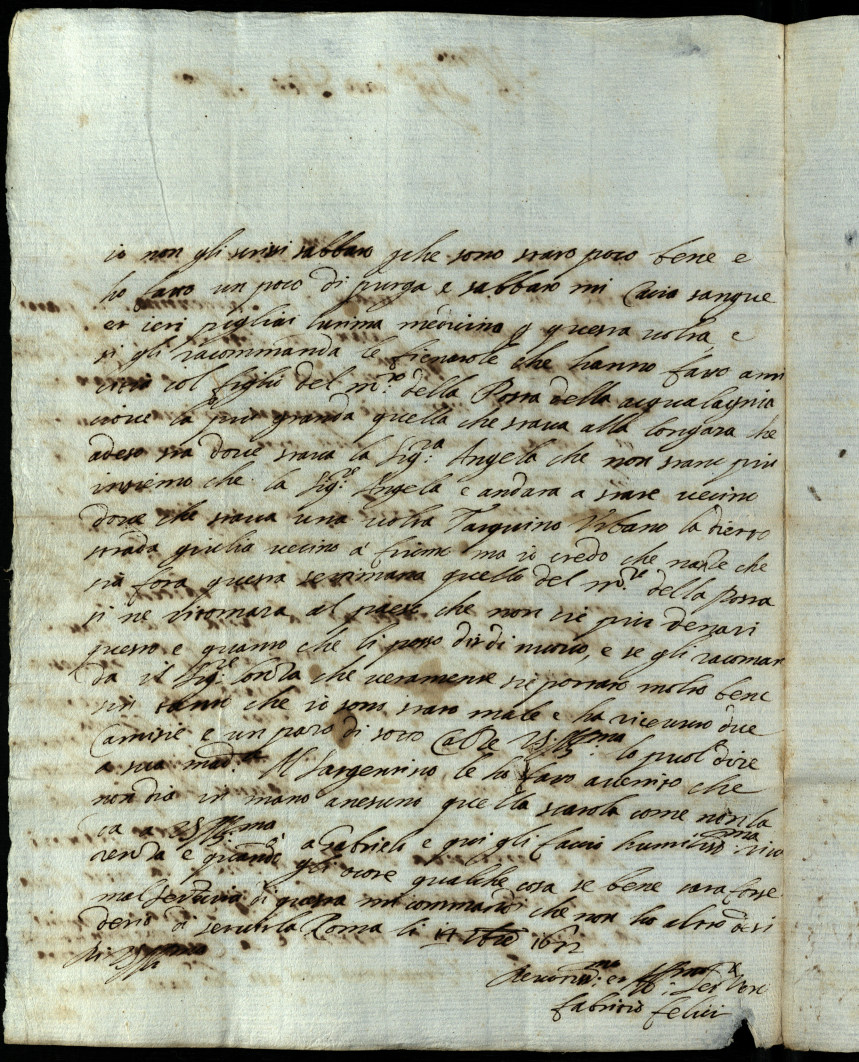 io non gli scrissi sabbato p̱che sono stato poco bene e
ho fatto un poco di purga e sabbato mi Cavai sangue
et ieri pigliai lutima medicina p̱ questa volta e
si gli racommanda le che hanno fatto ami
citia col figlio del m.ro della Posta della acqualagnia
cioue la piu granda quella che stava alla longara che
adeso sta dove stava la Sig.ra Angela che non stano piu
insieme che la Sig.ra Angela e andata a stare vecino
dove che stava una volta Tarquino Urbano la dietro
strada giulia vecino a fiume ma io credo che naste che
sia fora questa settimana quello del m.ro della Posta
si ne ritornara al paese che non vi piu denari
questo e quanto che li posso dir di nuovo, e se gli racoman
da il Sig.re che veramente si e portato molto bene
in tanto che io sono stato male e ha ricevuto due
Camisie e un paro di soto Calze VS Ill.ma lo puol dire
a sua mad.re Al Sargentino le ho fatto avertito che
non dia in mano anesuno quella scatola come non la
da a VS Ill.ma o a Gabriele e qui gli faccio humiliss.ma rive
renza e quando gli ocore qualche cosa se bene sara forse
mal servuta di questa mi commandi che non ho altro desi
derio di servirla Roma li 1672
Di VS Ill.ma
Devotiss.mo et Ser.tore
Fabritio Felici